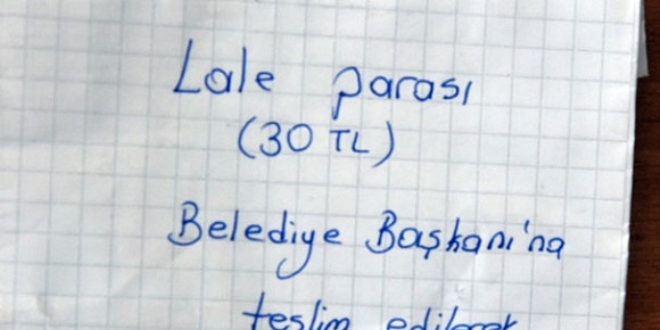 Lale parası
(30 TL)
Belediye Başkanı'na
teslim edilecek